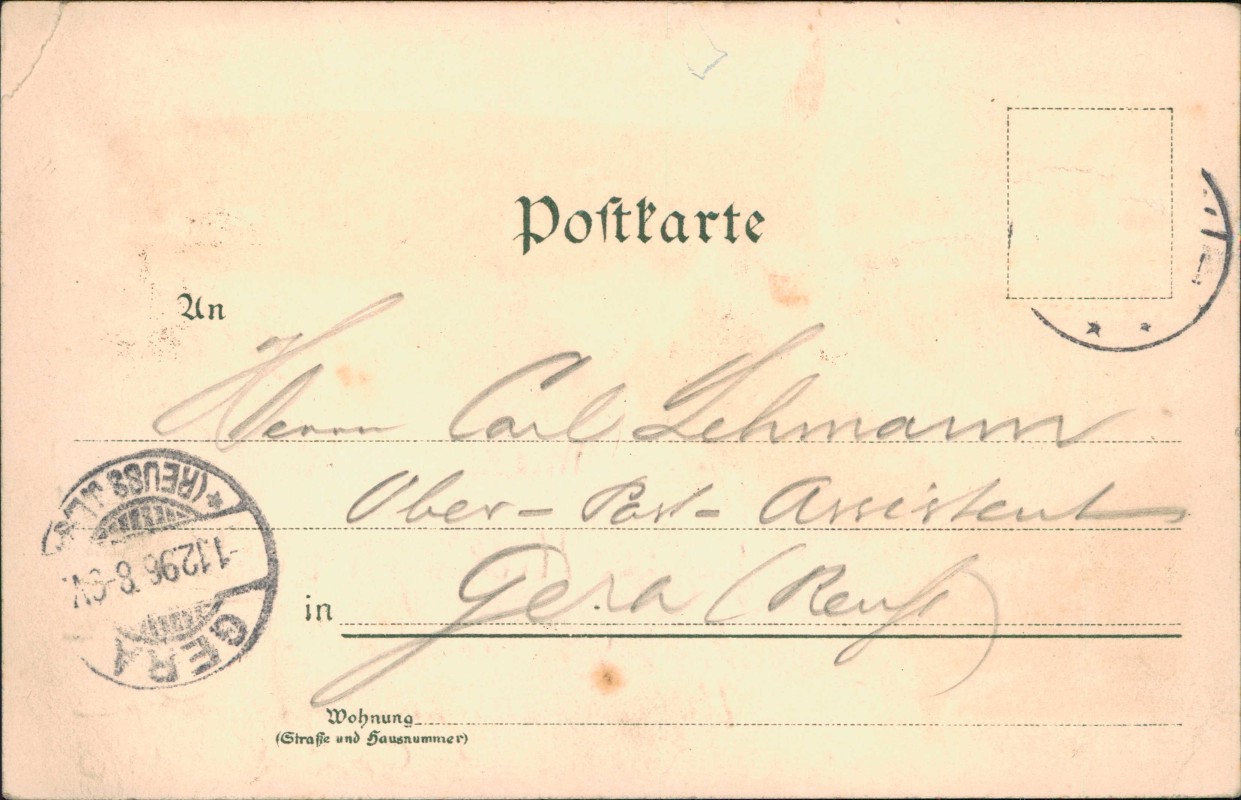 Postkarte
An
Herrn Carl Lehmann
Ober-Post-Assistent
in Gera (Reuß)
Wohnung
(Straße und Hausnummer)
GERA
(REUSS
1.12.96. 8-9V.